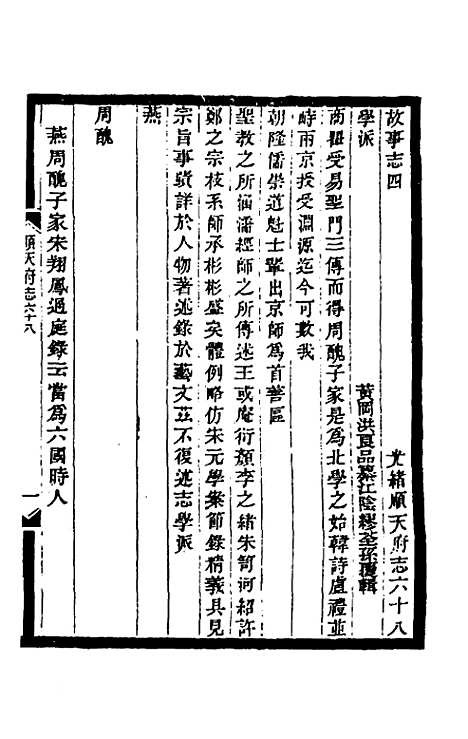 故事志四　光緒順天府志六十八
學派　黃岡洪良品纂江陰繆荃孫覆輯
商瞿受易聖門三傳而得周醜子家是爲北學之始韓詩盧禮並
峙兩京授受淵源迄今可數我
朝隆儒崇道魁士輩出京師爲首善區
聖教之所涵濡經師之所傳述王或庵衍顏李之緖朱笥河紹許
鄭之宗枝系師承彬彬盛矣體例略仿宋元學案節錄精義具見
宗旨事蹟詳於人物著述錄於藝文茲不復述志學派
燕
周醜
燕周醜子家宋翔鳳過庭錄云當爲六國時人
順天府志六十八
一